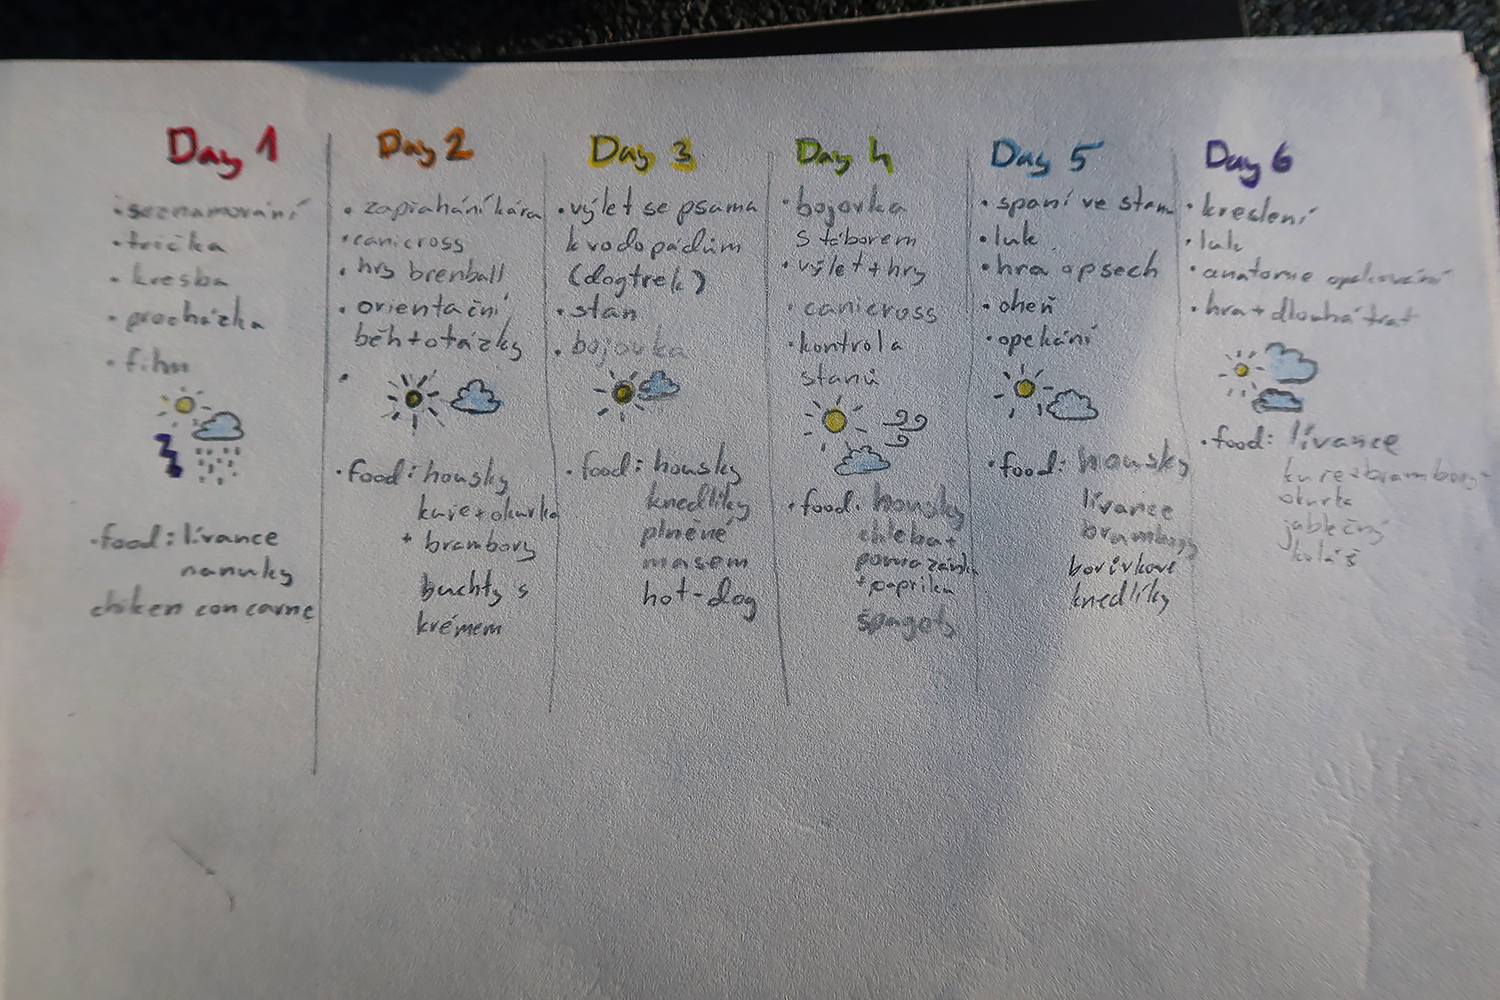 Day 1
• seznamování
• trička
• kresba
• procházka
• film
• food: lívance
nanuky
chiken con carne
Day 2
• zapřahání kára
• canicross
• hry brenball
• orientační
běh + otázky
•
• food: housky
kuře + okurka
+ brambory
buchty s
krémem
Day 3
• výlet se psama
k vodopádům
(dogtrek)
• stan
• bojovka
• food: housky
knedlíky
plněné
masem
hot-dog
Day 4
• bojovka
s táborem
• výlet + hry
• canicross
• kontrola
stanů
• food: housky
chleba +
pomazánka
+ paprika
špagety
Day 5
• spaní ve stanu
• luk
• hra o psech
• oheň
• opékání
• food: housky
lívance
brambory
borůvkové
knedlíky
Day 6
• kreslení
• luk
• anatomie opakování
• hra + dlouhá trať
• food: lívance
kuře + brambory +
okurka
jablečný
koláč